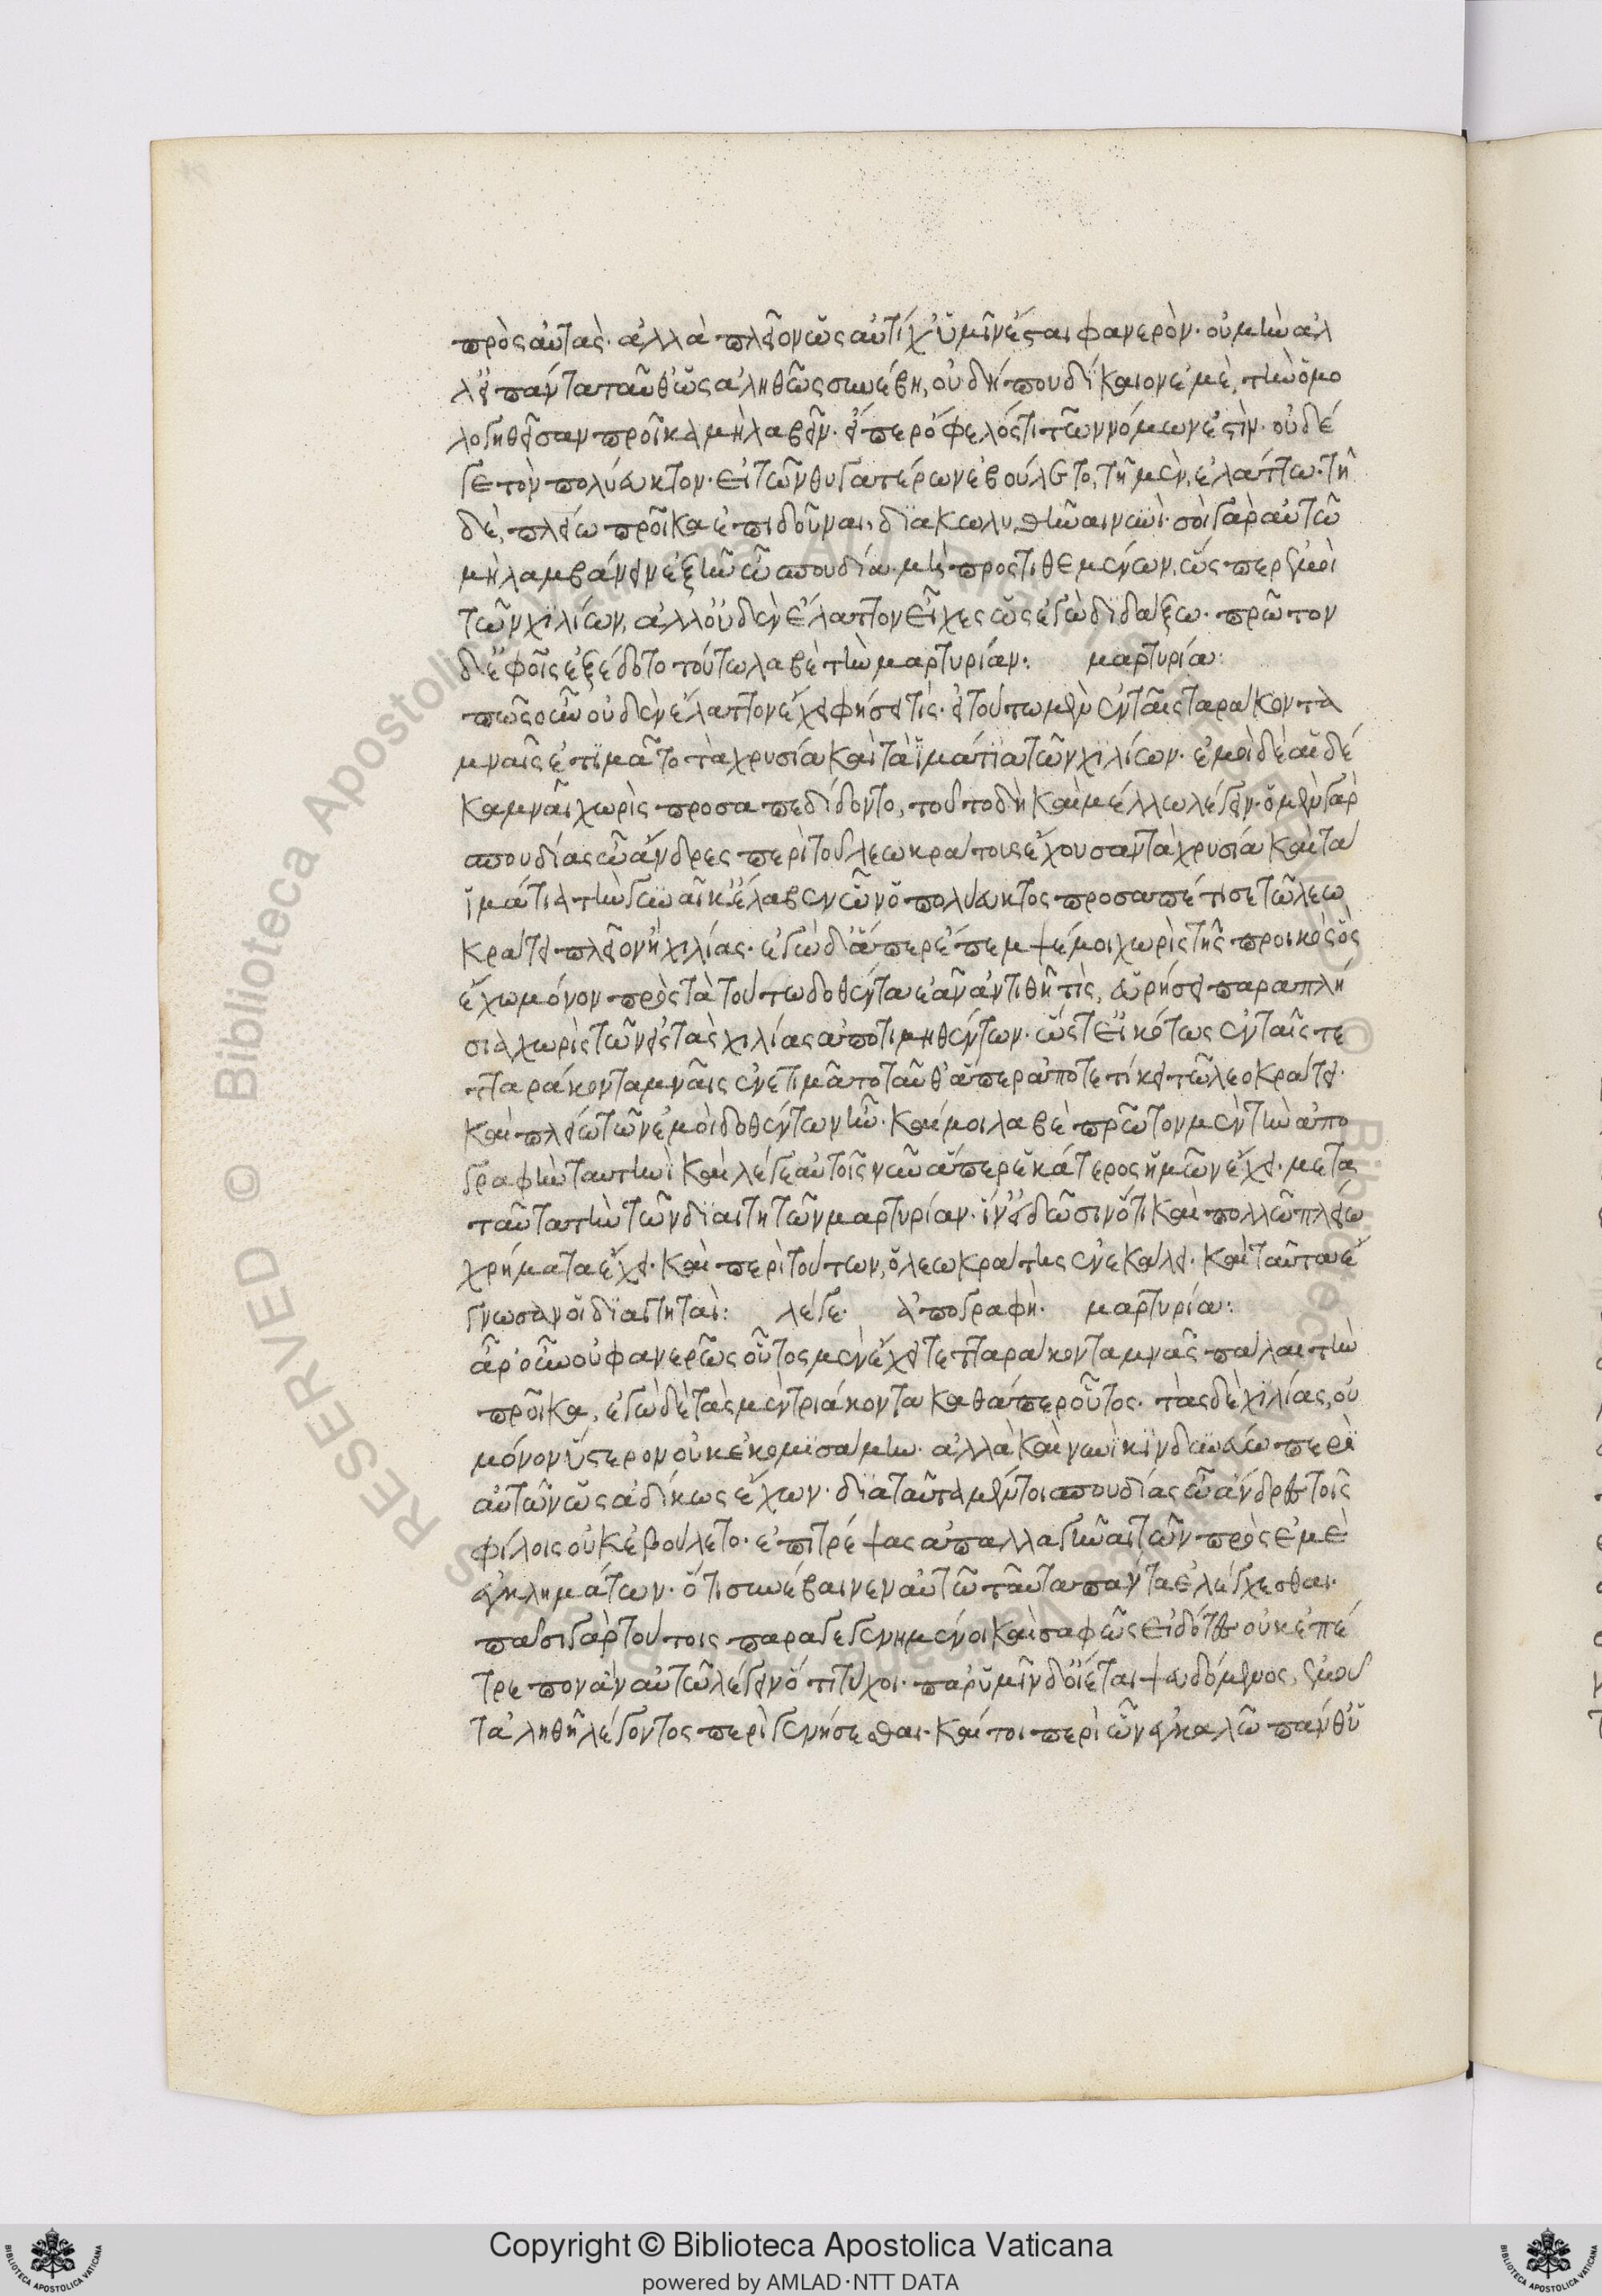 πρὸς αὐτὰς· ἀλλὰ πλεῖον ὡς αὐτίχ' ὑμῖν ἔσται φανερὸν· οὐ μὴν ἀλ
λ' εἰ πάντα ταῦθ' ὡς ἀληθῶς συνέβη, οὐ δήπου δίκαιον ἐμὲ, τὴν ὁμο
λογηθεῖσαν προῖκα μὴ λαβεῖν· εἴπερ ὄφελός τι τῶν νόμων ἐστὶν· οὐδέ
γε τὸν πολύευκτον· εἰ τῶν θυγατέρων ἐβούλετο, τῇ μὲν, ἐλάττω· τῇ
δὲ, πλείω προῖκα ἐπιδοῦναι, διακωλυθῆναι νυνὶ· σοὶ γὰρ αὐτῶ
μὴ λαμβάνειν ἐξῆν ὦ σπουδία· μὴ προστιθεμένων, ὥσπερ ἐμοὶ
τῶν χιλίων, ἀλλ' οὐδὲν ἔλαττον εἶχες ὡς ἐγὼ διδάξω· πρῶτον
δ' ἐφ' οἷς ἐξέδοτο τούτω λαβὲ τὴν μαρτυρίαν: μαρτυρία:
πῶς οὖν οὐδὲν ἔλαττον εἶχε φήσει τίς· εἰ τούτω μὲν ἐν ταῖς τταράκοντα
μναῖς ἐτιμᾶτο τὰ χρυσία καὶ τὰ ἱμάτια τῶν χιλίων· ἐμοὶ δὲ αἱ δέ
κα μναῖ χωρὶς προσαπεδίδοντο, τοῦτο δὴ καὶ μέλλω λέγειν· ὁ μὲν γὰρ
σπουδίας ὦ ἄνδρες περὶ τοῦ λεωκράτους ἔχουσαν τὰ χρυσία καὶ τὰ
ἱμάτια τὴν γυναῖκ' ἔλαβεν ὧν ὁ πολύευκτος προσαπέτισε τῶ λεω
κράτει πλεῖον ἢ χιλίας· ἐγὼ δ' ἅπερ ἔπεμψέ μοι χωρὶς τῆς προικὸς ὃς
ἔχω μόνον πρὸς τὰ τούτω δοθέντα ἐὰν ἀντιθῇ τὶς, εὑρήσει παραπλή
σια χωρὶς τῶν εἰς τὰς χιλίας ἀποτιμηθέντων· ὥστ' εἰκότως ἐν ταῖς τε
τταράκοντα μναῖς ἐνετιμᾶτο ταῦθ' ἅπερ ἀποτετίκει τῶ λεοκράτει·
καὶ πλείω τῶν ἐμοὶ δοθέντων ἦν· καί μοι λαβὲ πρῶτον μὲν τὴν ἀπο
γραφὴν ταυτηνὶ καὶ λέγε αὐτοῖς νῦν ἅπερ ἑκάτερος ἡμῶν ἔχει· μετὰ
ταῦτα τὴν τῶν διαιτητῶν μαρτυρίαν· ἵν' εἰδῶσιν ὅτι καὶ πολλῶ πλείω
χρήματα ἔχει· καὶ περὶ τούτων, ὁ λεωκράτης ἐνεκάλει· καὶ ταῦτα ἔ
γνωσαν οἱ διαιτηταὶ: λέγε· ἀπογραφὴ· μαρτυρία:
ἆρ' οὖν οὐ φανερῶς οὗτος μὲν ἔχει τετταράκοντα μνᾶς πάλαι τὴν
προῖκα, ἐγὼ δὲ τὰς μὲν τριάκοντα καθάπερ οὗτος· τὰς δὲ χιλίας, οὐ
μόνον ὕστερον οὐκ ἐκομισάμην· ἀλλὰ καὶ νυνὶ κινδυνεύω περὶ
αὐτῶν ὡς ἀδίκως ἔχων· διὰ ταῦτα μέντοι σπουδίας ὦ ἄνδρες τοῖς
φίλοις οὐκ ἐβούλετο· ἐπιτρέψας ἀπαλλαγῆναι τῶν πρὸς ἐμὲ
ἐγκλημάτων· ὅτι συνέβαινεν αὐτῶ ταῦτα πάντα ἐλέγχεσθαι·
πᾶσι γὰρ τούτοις παραγεγενημένοι καὶ σαφῶς εἰδότες οὐκ ἐπέ
τρεπον ἂν αὐτῶ λέγειν ὅ τι τύχοι· παρ' ὑμῖν δ' οἴεται ψευδόμενος, ἐμοῦ
τἀληθῆ λέγοντος περιγενήσεσθαι· καίτοι περὶ ὧν ἐγκαλῶ πάνθ' ὑ